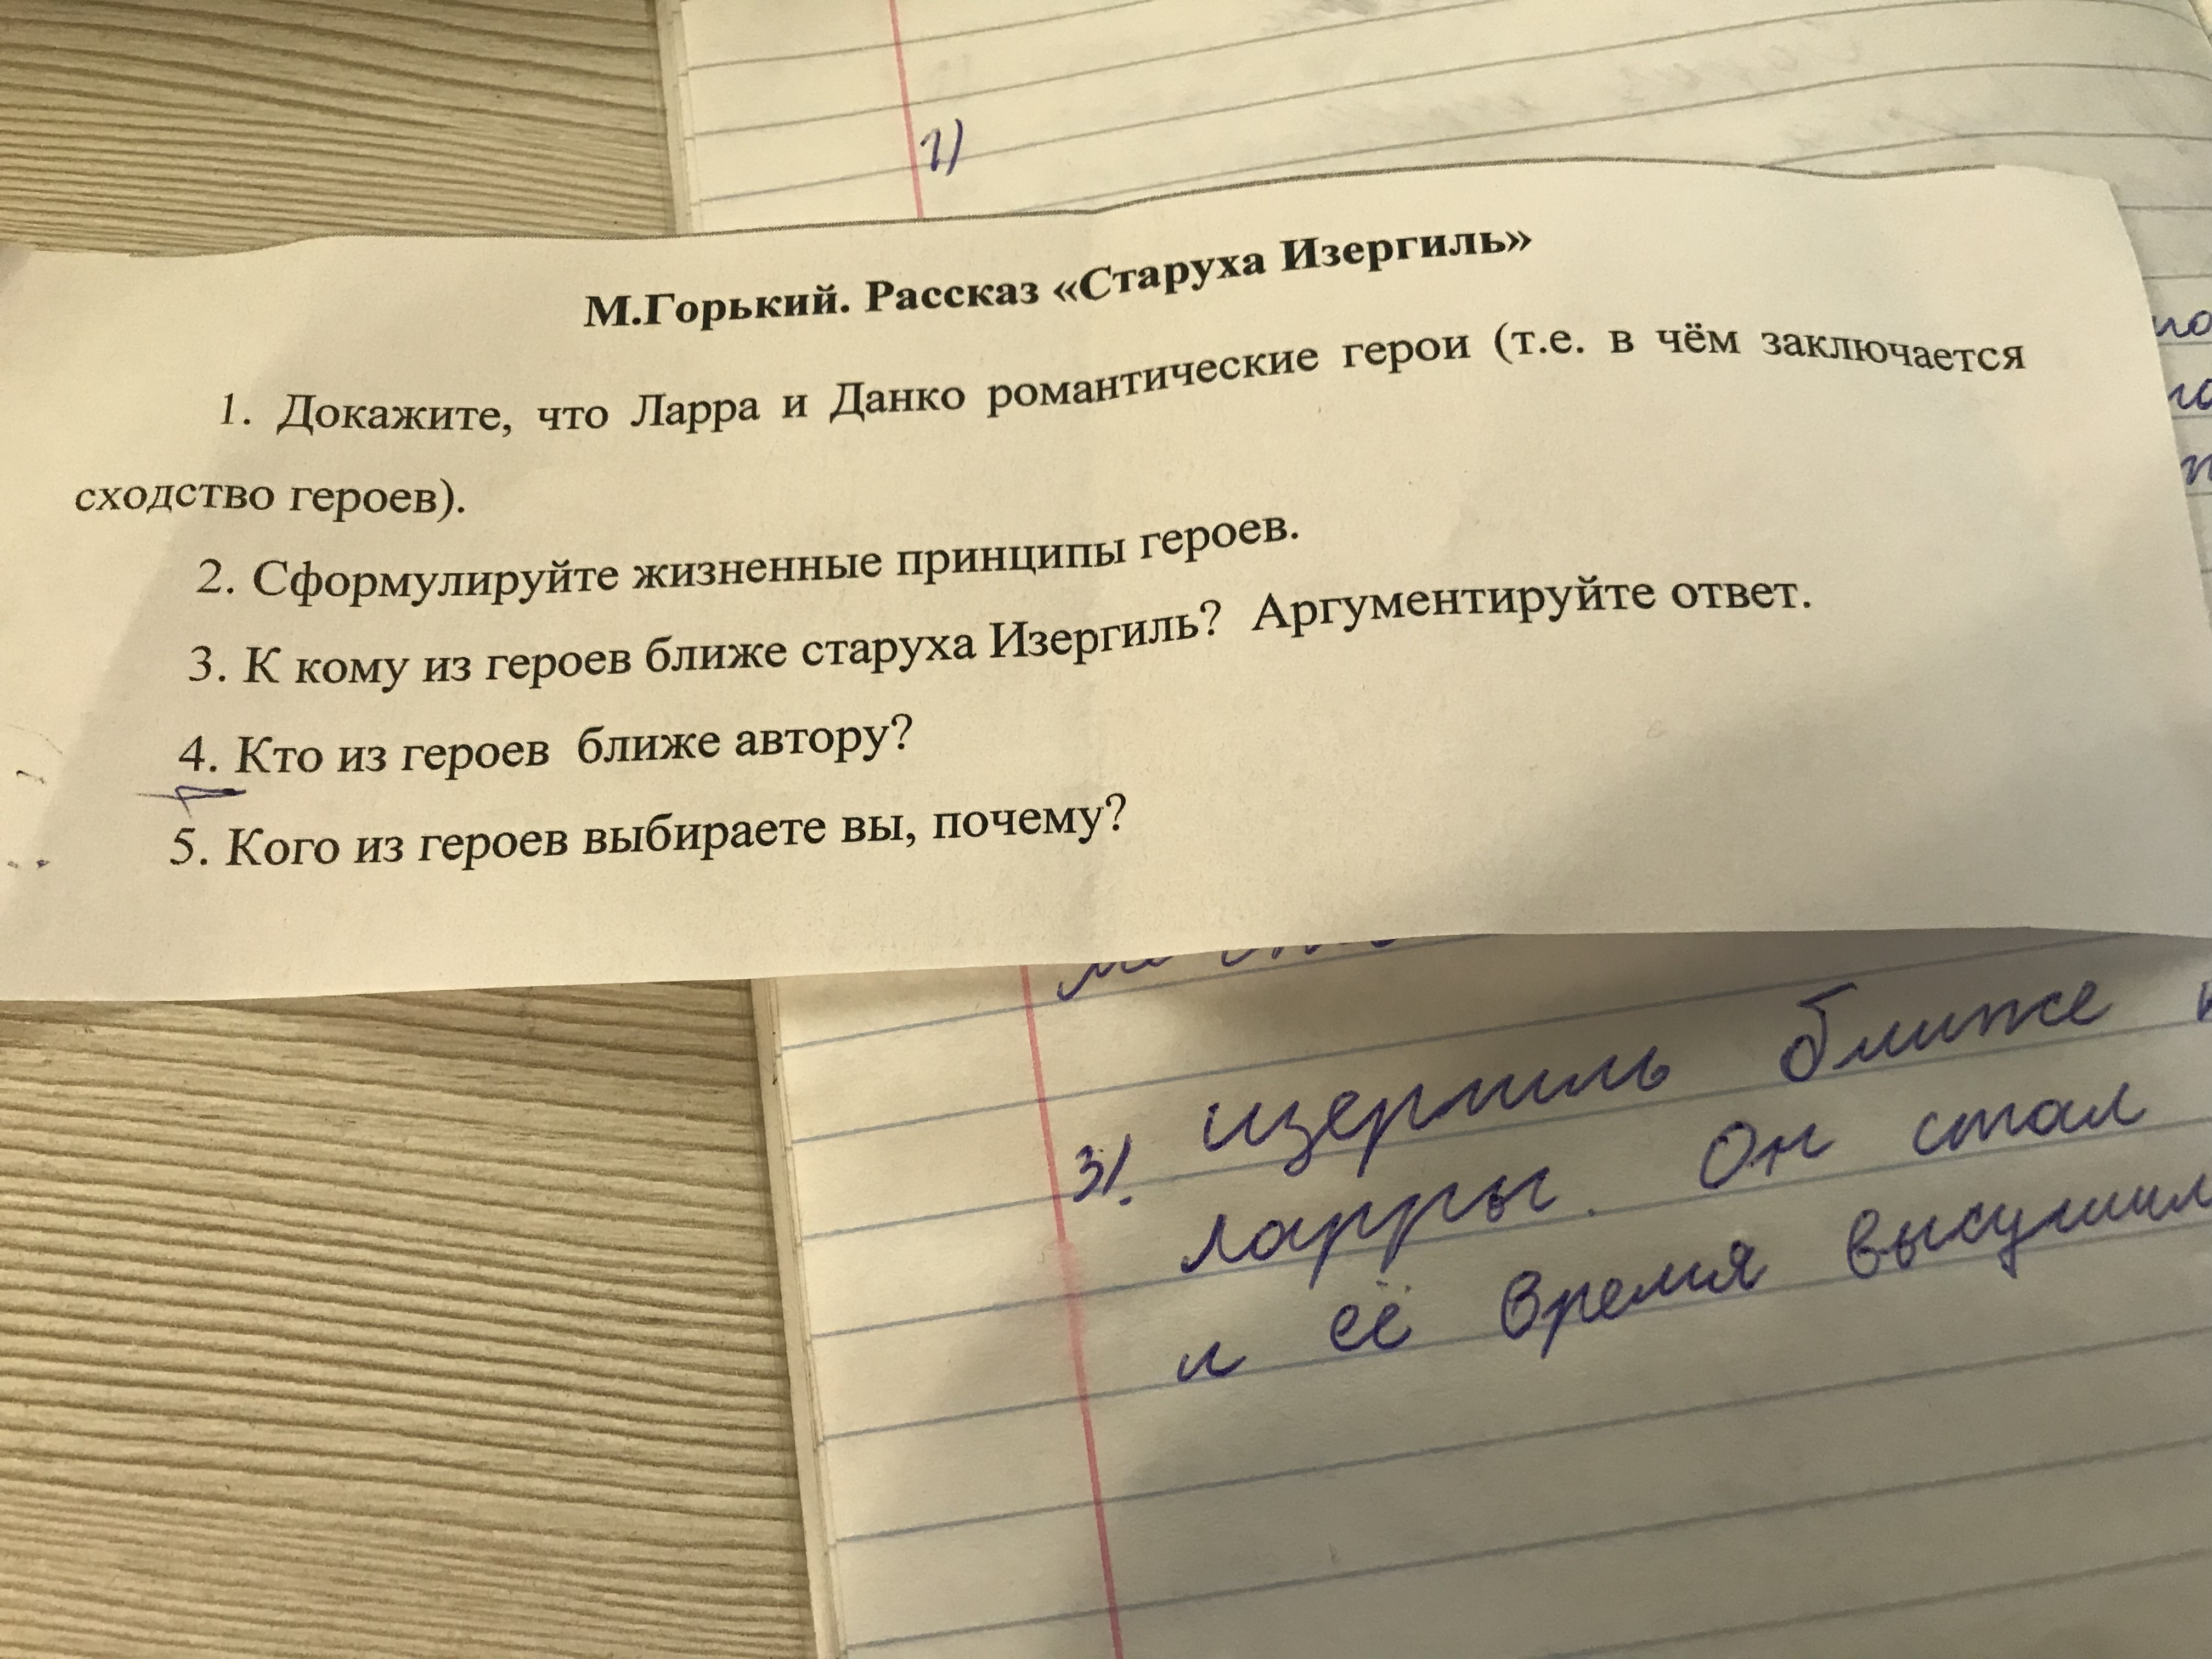 1)
М.Горький. Рассказ «Старуха Изергиль»
1. Докажите, что Ларра и Данко романтические герои (т.е. в чём заключается
сходство героев).
2. Сформулируйте жизненные принципы героев.
3. К кому из героев ближе старуха Изергиль? Аргументируйте ответ.
4. Кто из героев ближе автору?
5. Кого из героев выбираете вы, почему?
3). изергиль ближе к
ларры. Он стал
и её время высушил